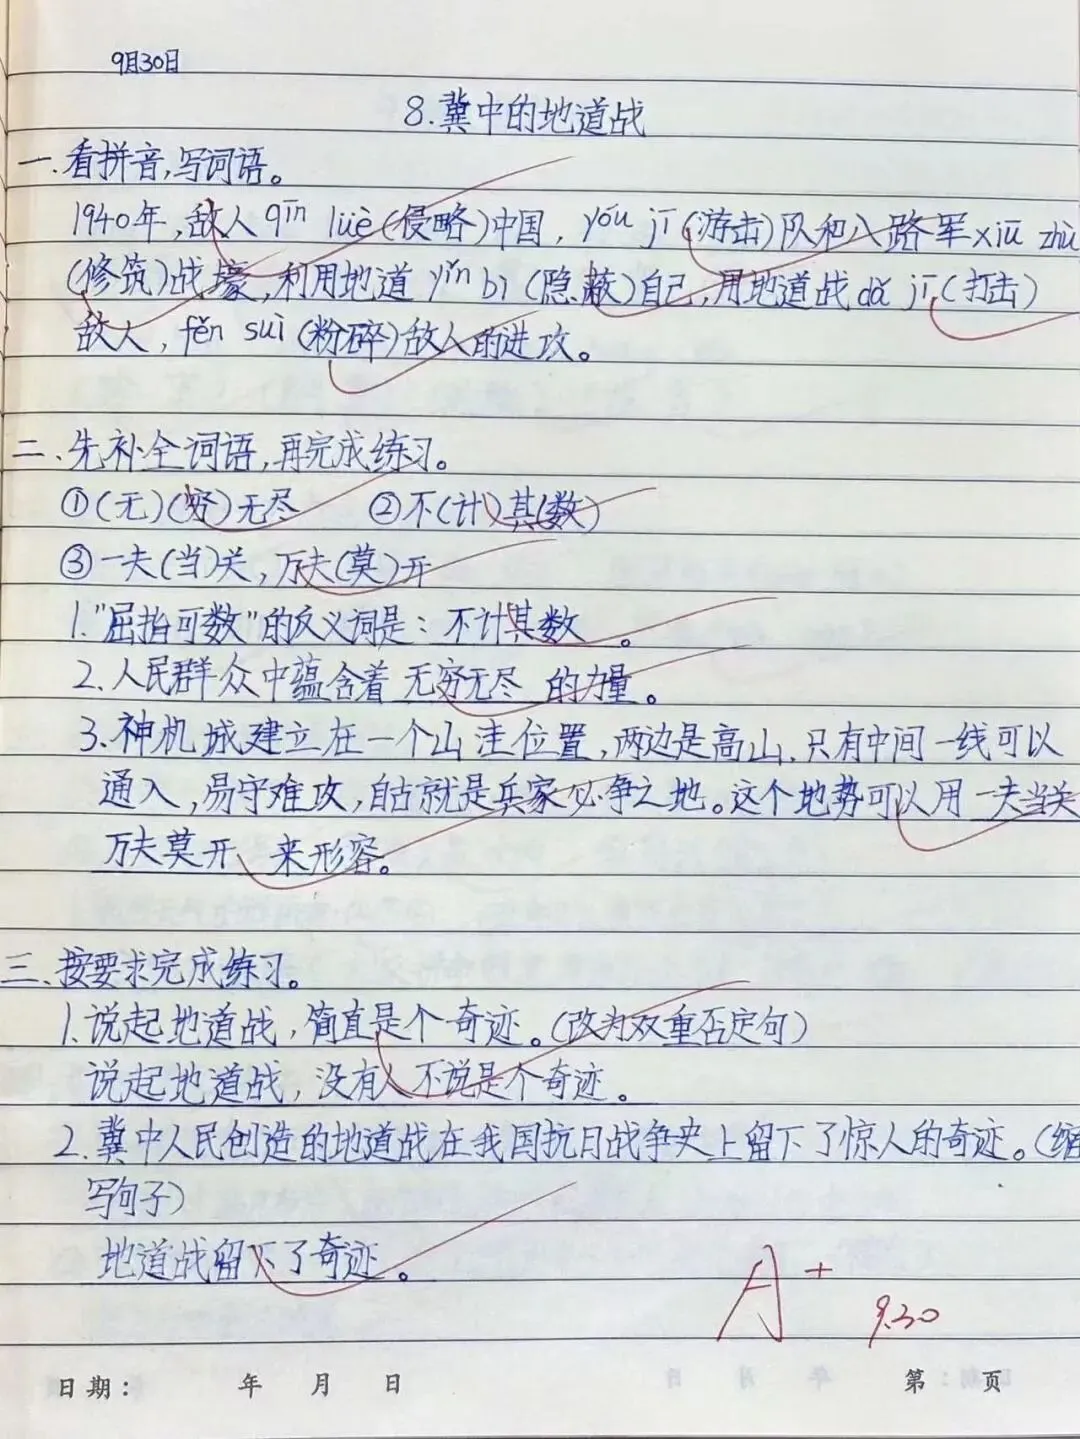 9月30日
8.冀中的地道战
一.看拼音,写词语。
1940年,敌人qīn lüè(侵略)中国,yóu jī(游击)队和八路军xiū zhù
(修筑)战壕,利用地道yǐn bì(隐蔽)自己,用地道战dǎ jī(打击)
敌人,fěn suì(粉碎)敌人的进攻。
二、先补全词语,再完成练习。
①(无)(穷)无尽 ②不(计)其(数)
③一夫(当)关,万夫(莫)开
1."屈指可数"的反义词是:不计其数。
2.人民群众中蕴含着 无穷无尽 的力量。
3.神机城建立在一个山洼位置,两边是高山,只有中间一线可以
通入,易守难攻,自古就是兵家必争之地。这个地势可以用 一夫当关
万夫莫开 来形容。
三、按要求完成练习。
1.说起地道战,简直是个奇迹。(改为双重否定句)
说起地道战,没有人不说是个奇迹。
2.冀中人民创造的地道战在我国抗日战争史上留下了惊人的奇迹。(缩
写句子)
地道战留下了奇迹。
A+
9.30
日期: 年 月 日 第 页